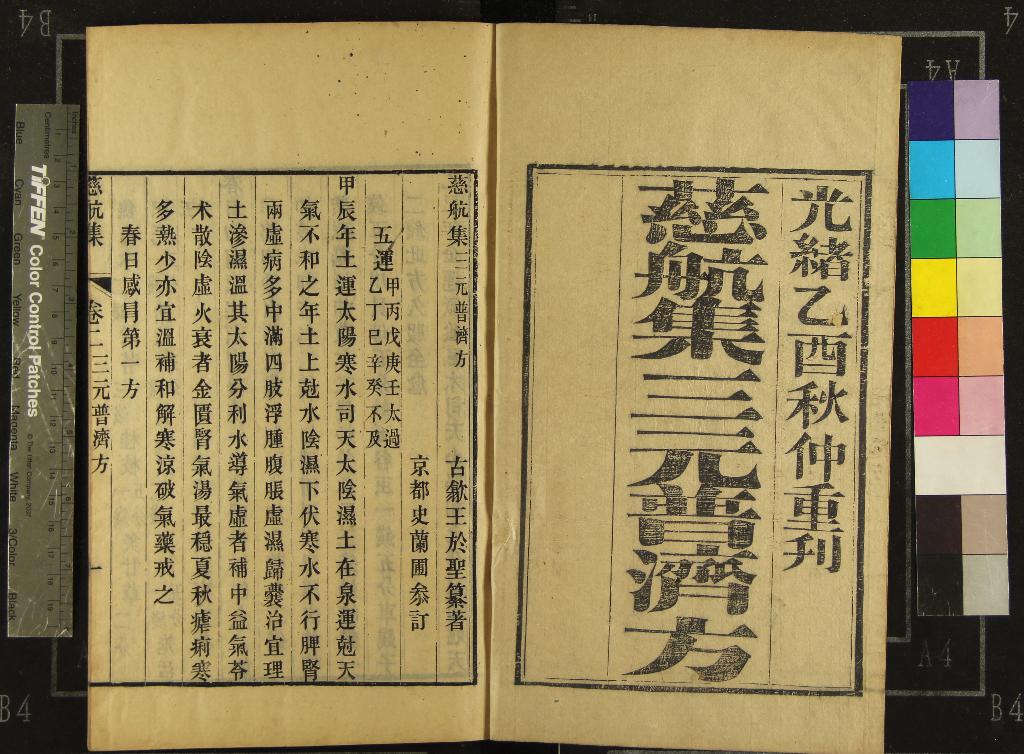 光緒乙酉秋仲重刋
慈航集三元普濟方
慈航集三元普濟方
古歙王於聖纂著
京都史蘭圃叅訂
五運
甲丙戊庚壬太過
乙丁巳辛癸不及
甲辰年土運太陽寒水司天太陰濕土在泉運尅天
氣不和之年土上尅水陰濕下伏寒水不行脾腎
兩虛病多中滿四肢浮腫腹脹虛濕歸嚢治宜理
土滲濕溫其太陽分利水導氣虛者補中益氣苓
术散陰虛火衰者金匱腎氣湯最穏夏秋瘧痢寒
多熱少亦宜溫補和解寒涼破氣藥戒之
春日感冐第一方
慈航集
卷二三元普濟方
一
TIFFEN Color Control Patches
© The Tiffen Company, 2007
Centimetres
Inches
Blue
Cyan
Green
Yellow
Red
Magenta
White
3/Color
Black
B4
A4
4
A4
B4
B4